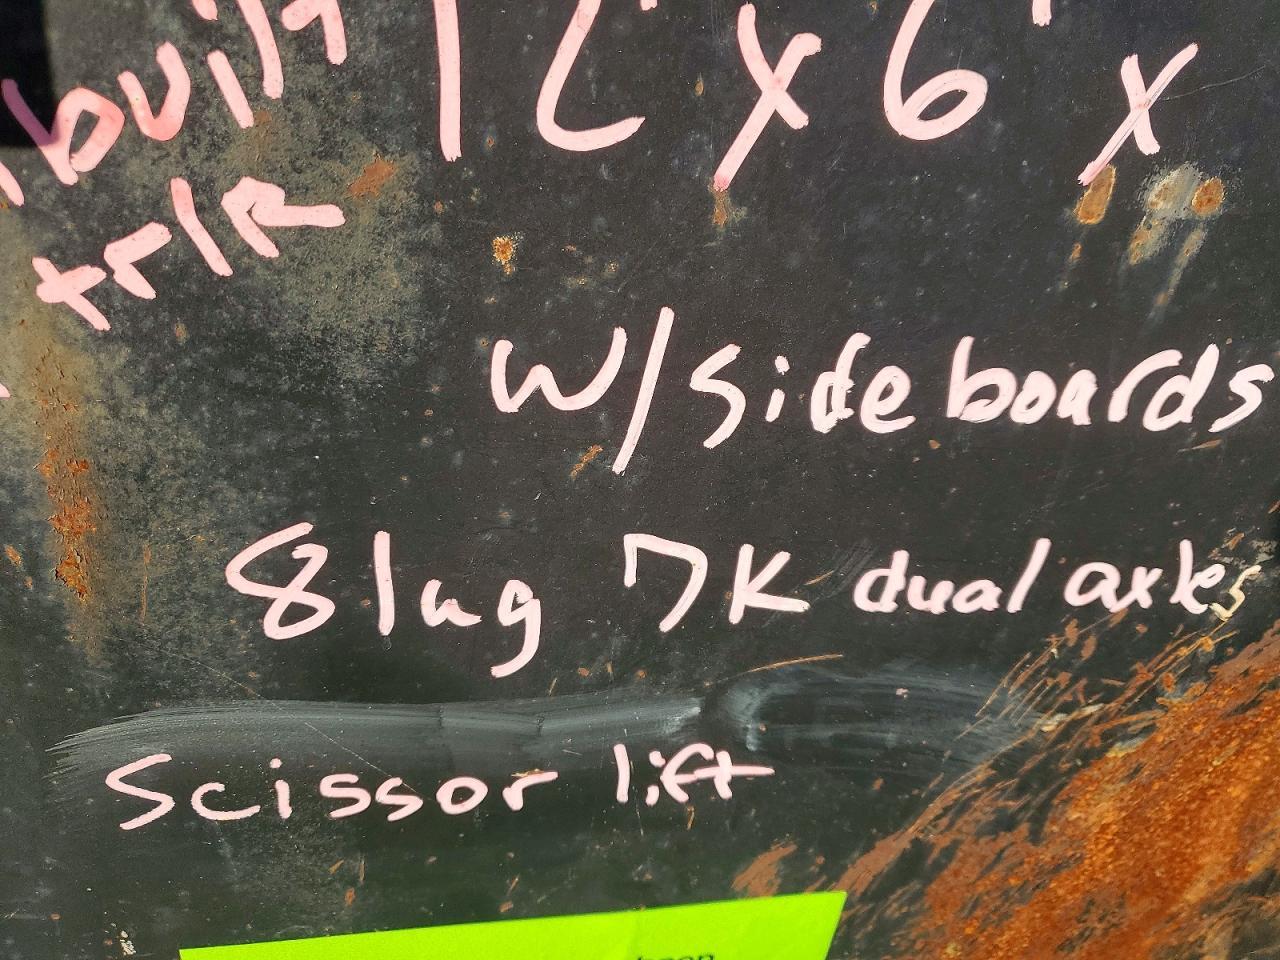 built
trlR
12' x 6' x
w/side boards
8 lug 7K dual axles
Scissor lift